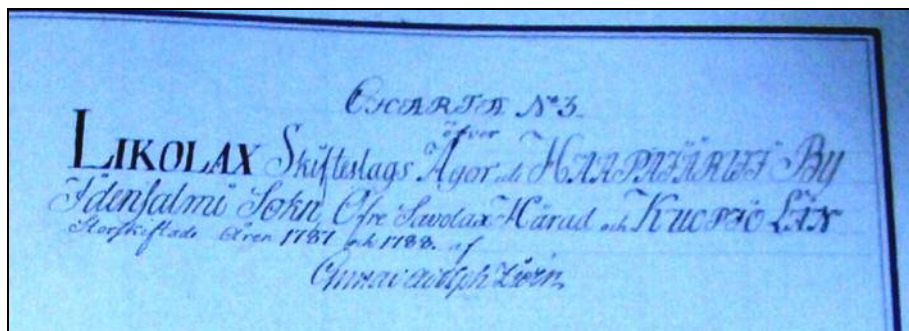 CHARTA N:o 3
öfver
LIKOLAX Skifteslags Ägor uti HAAPAJÄRWI By
Idensalmi Sokn Öfre Savolax Härad och KUOPIO LÄN
Storskiftade Åren 1787 och 1788. af
Adolph